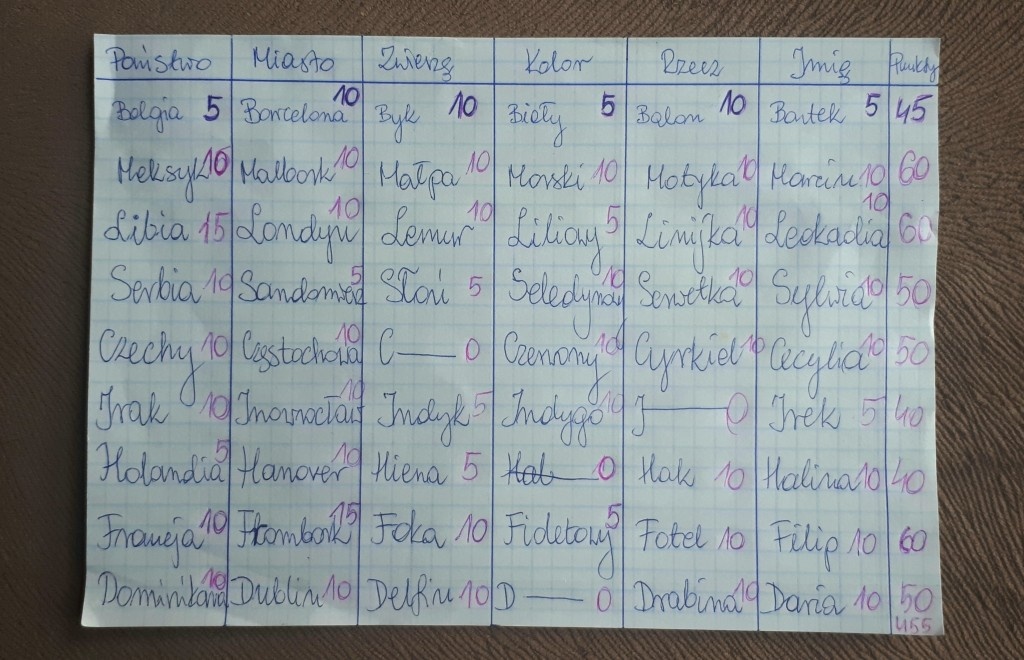 Państwo Miasto Zwierzę Kolor Rzecz Imię Punkty
Belgia 5 Barcelona 10 Byk 10 Biały 5 Balon 10 Bartek 5 45
Meksyk 10 Malbork 10 Małpa 10 Morski 10 Motyka 10 Marcin 10 60
Libia 15 Londyn 10 Lemur 10 Liliowy 5 Linijka 10 Leokadia 10 60
Serbia 10 Sandomierz 5 Słoń 5 Seledynowy 10 Serwetka 10 Sylwia 10 50
Czechy 10 Częstochowa 10 C — 0 Czerwony 10 Cyrkiel 10 Cecylia 10 50
Irak 10 Inowrocław 10 Indyk 5 Indygo 10 I — 0 Irek 5 40
Holandia 5 Hanower 10 Hiena 5 Hab 0 Hak 10 Halina 10 40
Francja 10 Frombork 15 Foka 10 Fioletowy 5 Fotel 10 Filip 10 60
Dominikana 10 Dublin 10 Delfin 10 D — 0 Drabina 10 Daria 10 50
455